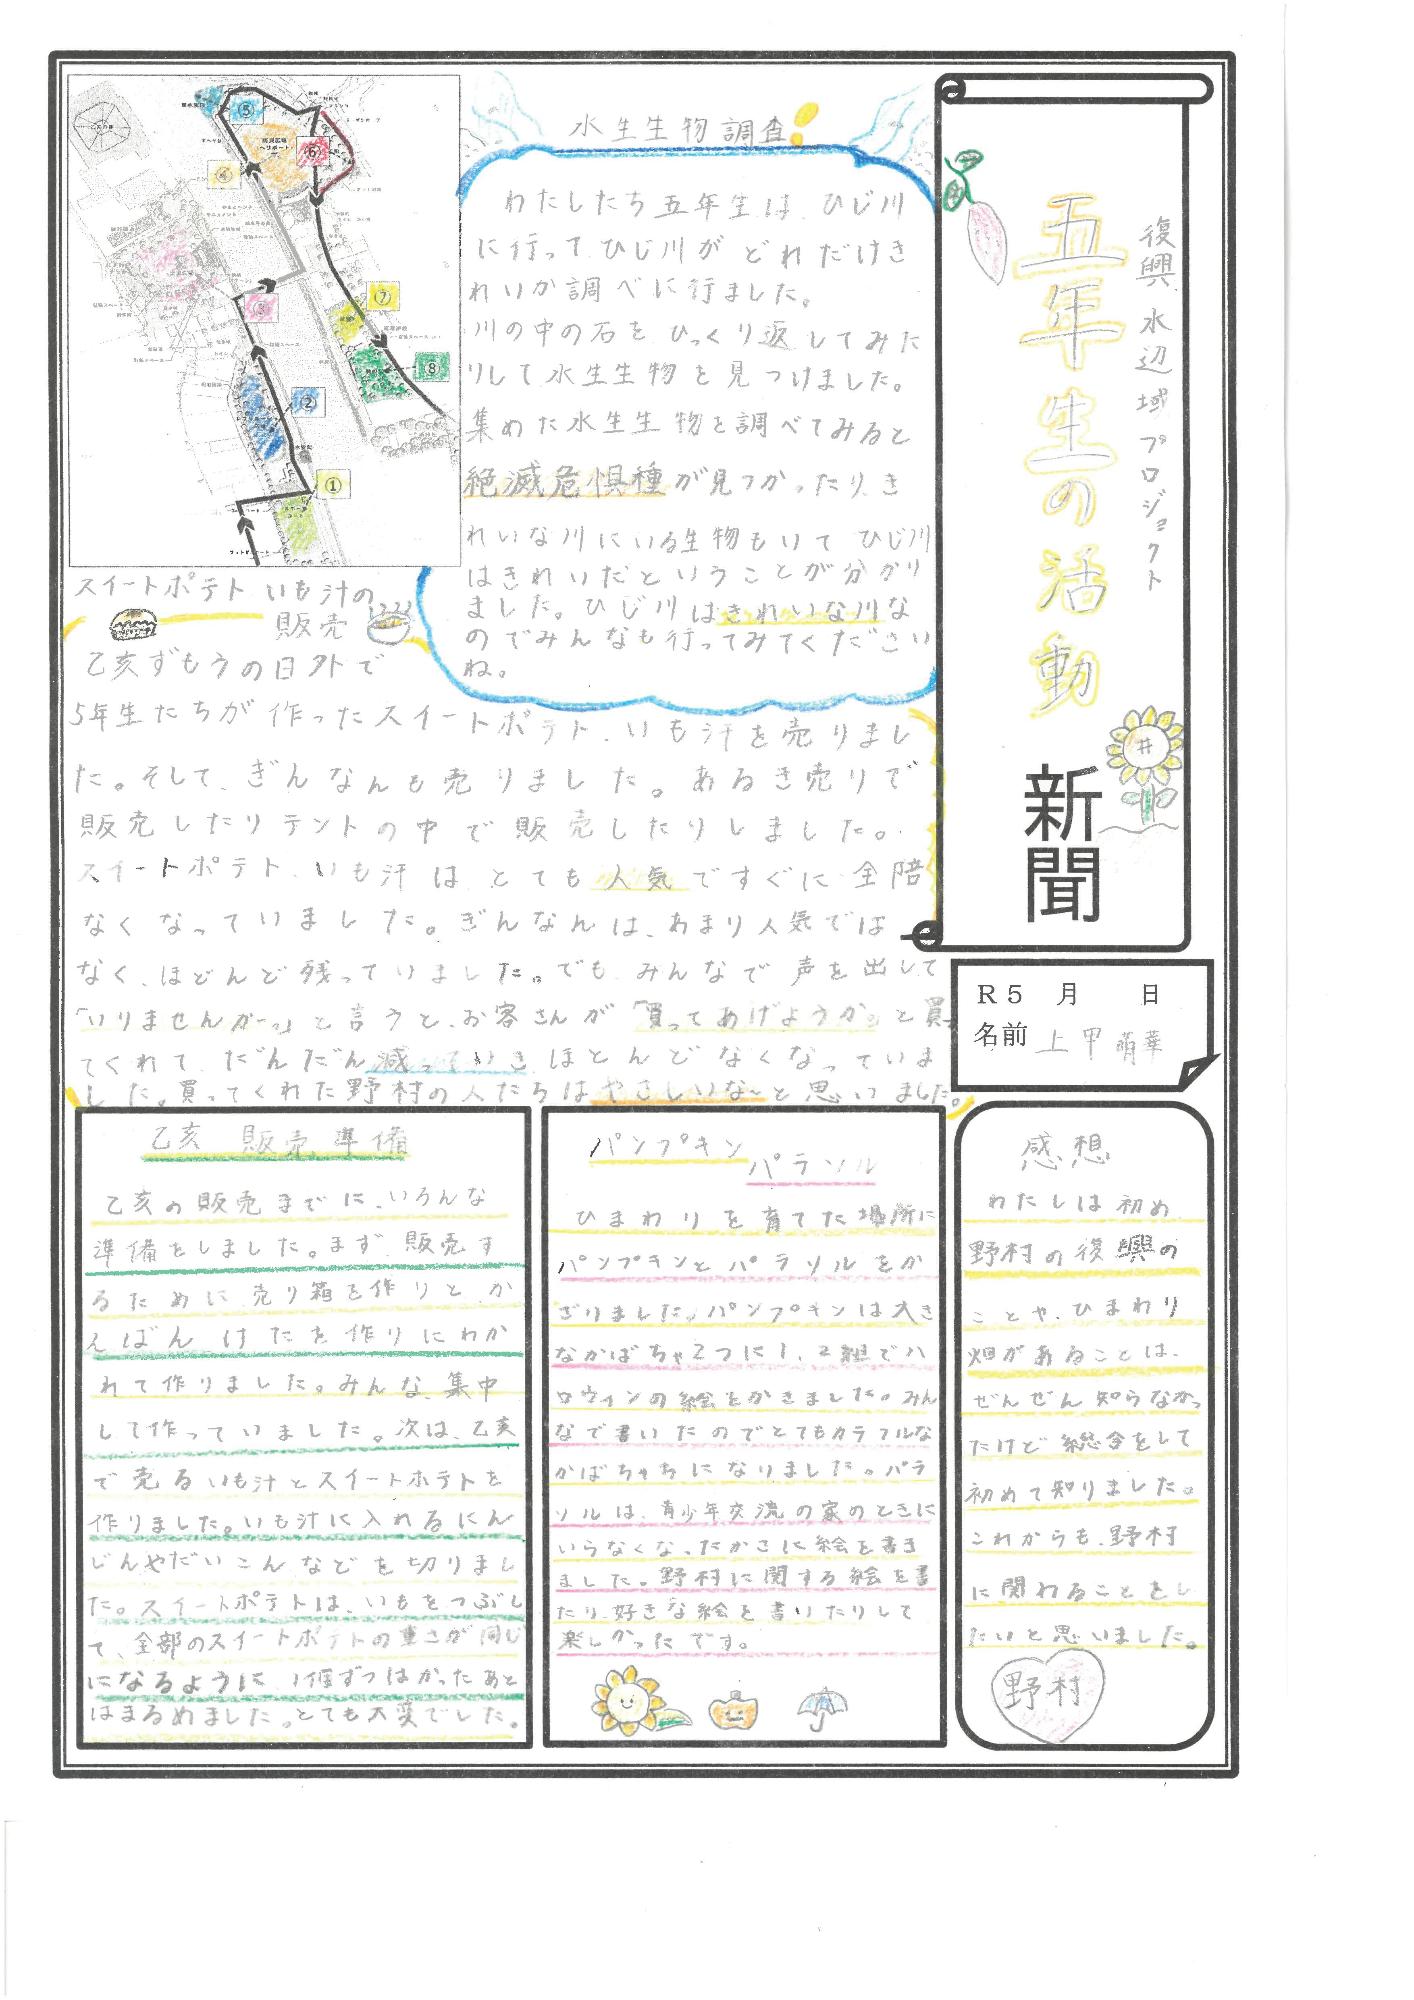 復興水辺域プロジェクト
五年生の活動
新聞
R5 月 日
名前 上甲 萌華
水生生物調査
わたしたち五年生は、ひじ川
に行って、ひじ川が どれだけき
れいか調べに行ました。
川の中の石を ひっくり返してみた
りして水生生物を見つけました。
集めた水生生物を調べてみると
絶滅危惧種が見つかったり、き
れいな川にいる生物もいて ひじ川
はきれいだということが分かり
ました。ひじ川はきれいな川な
のでみんなも行ってみてくださいね。
①
②
③
④
⑤
⑥
⑦
⑧
スイートポテト、いも汁の
販売
乙亥ずもうの日外で
5年生たちが作ったスイートポテト、いも汁を売りまし
た。そして、ぎんなんも売りました。あるき売りで
販売したりテントの中で販売したりしました。
スイートポテト、いも汁は、とても人気ですぐに全陪
なくなっていました。ぎんなんは、あまり人気では
なく、ほどんど残っていました。でも、みんなで声を出して
「いりませんかーっ」と言うと、お客さんが「買ってあげようか。」と買っ
てくれて、だんだん減っていき、ほとんどなくなっていま
した。買ってくれた野村の人たちはやさしいな〜と思いました。
乙亥 販売準備
乙亥の販売までに、いろんな
準備をしました。まず、販売す
るために、売り箱を作りと、か
んばん けたを作りにわか
れて作りました。みんな、集中
して作っていました。次は、乙亥
で売るいも汁とスイートポテトを
作りました。いも汁に入れるにん
じんやだいこんなどを切りまし
た。スイートポテトは、いもをつぶし
て、全部のスイートポテトの重さが同じ
になるように、1個ずつはかったあと
はまるめました。とても大変でした。
パンプキン
パラソル
ひまわりを育てた場所に
パンプキンとパラソルをか
ざりました。パンプキンは大き
なかぼちゃ2つに1、2組でハ
ロウィンの絵をかきました。みん
なで書いたのでとてもカラフルな
かぼちゃちになりました。パラ
ソルは、青少年交流の家のときに
いらなくなったかさに絵を書き
ました。野村に関する絵を書い
たり、好きな絵を書いたりして
楽しかったです。
感想
わたしは初め、
野村の復興の
ことや、ひまわり
畑があることは、
ぜんぜん知らなかっ
たけど総合をして
初めて知りました。
これからも、野村
に関わることをし
たいと思いました。
野村